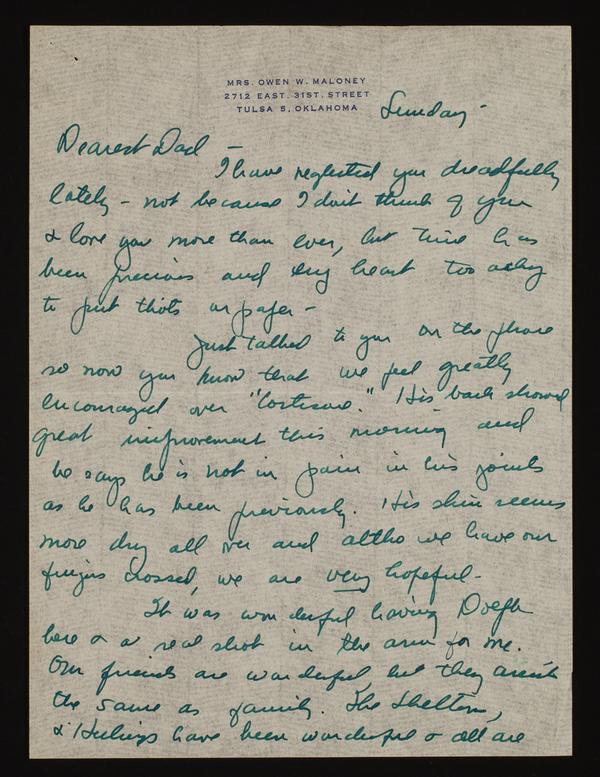 MRS. OWEN W. MALONEY
2712 EAST. 31ST. STREET
TULSA 5, OKLAHOMA
Sunday -
Dearest Dad -
I have neglected you dreadfully
lately - not because I don't think of you
& love you more than ever, but time has
been precious and my heart too achy
to put thots on paper -
Just talked to you on the phone
so now you know that we feel greatly
encouraged over "Cortisone." His back showed
great improvement this morning and
he says he is not in pain in his joints
as he has been previously. His skin seems
more dry all over and altho we have our
fingers crossed, we are very hopeful -
It was wonderful having
here & a real shot in the arm for me.
Our friends are wonderful, but they aren't
the same as family. The Skeltons,
& have been wonderful & all are